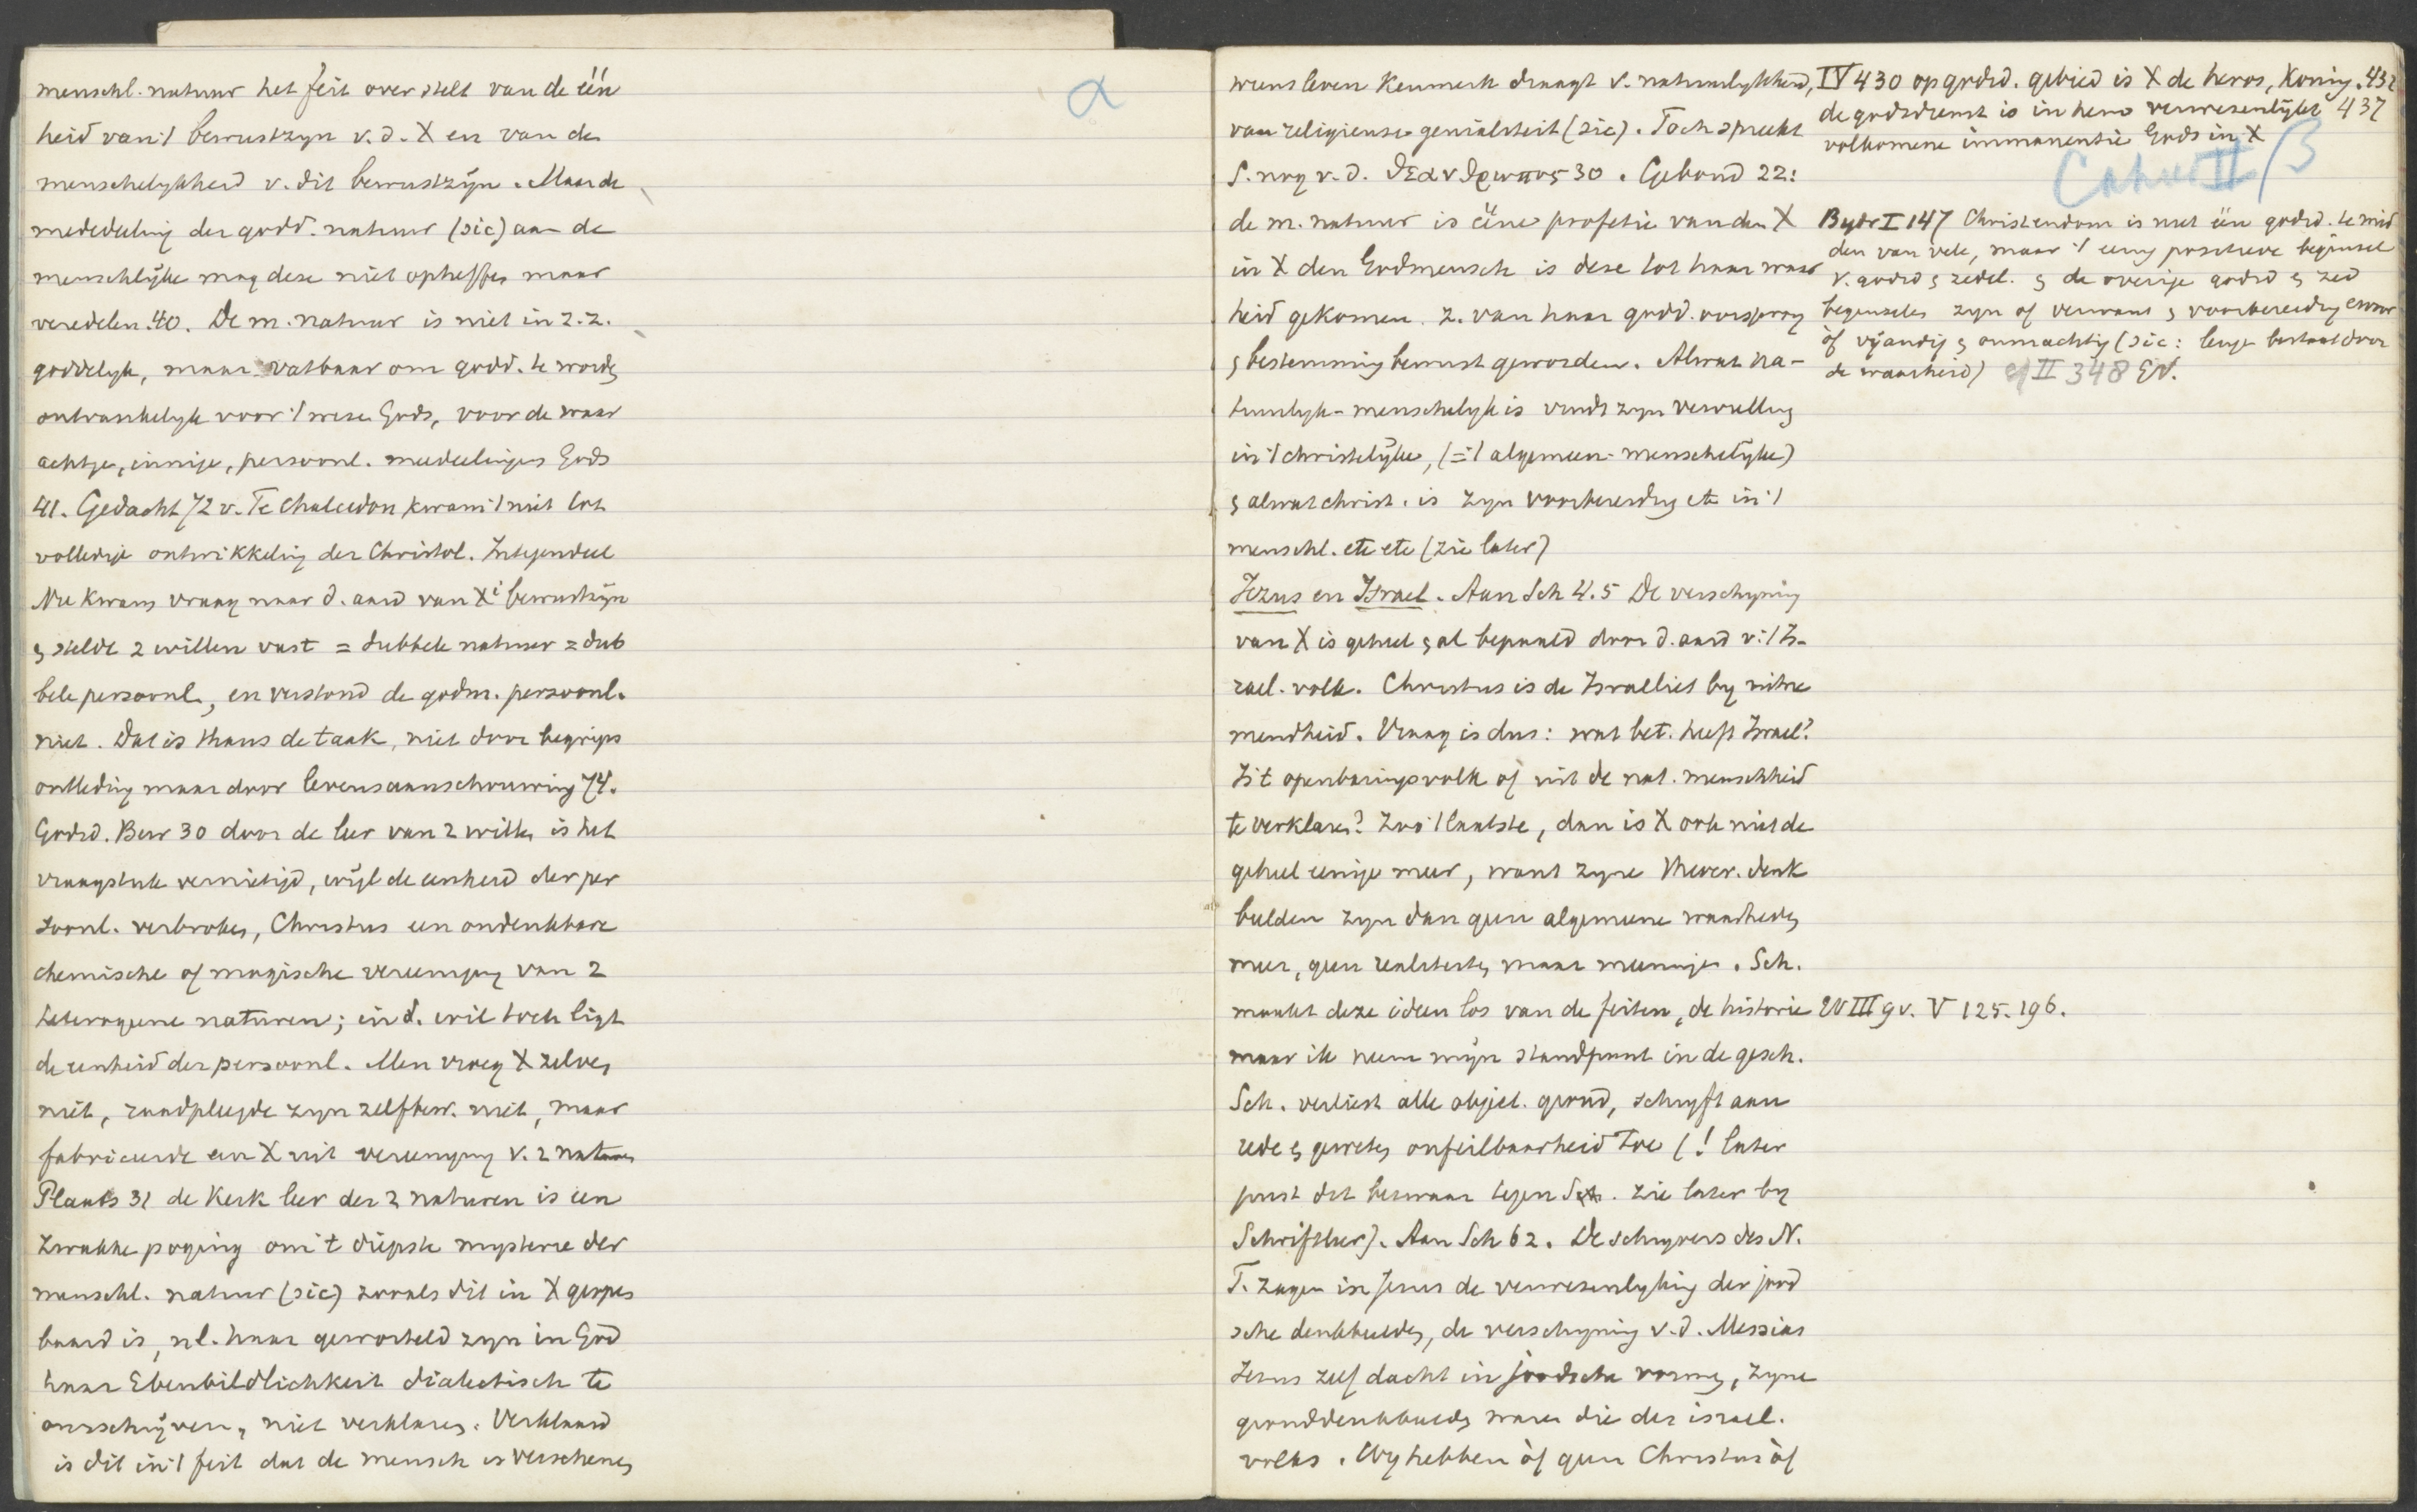 menschl. natuur het feit over stelt van de één
heid van 't bewustzyn v. d. X en van de
menschelykheid v. dit bewustzÿn. Maar de
mededeeling der godd. natuur (sic) aan de
menschlÿke mag deze niet opheffen maar
veredelen. 40. De m. natuur is niet in z. z.
goddelyk, maar vatbaar om godd. te worden
ontvankelyk voor 't weze Gods, voor de waar
achtige, innige, persoonl. mededeelingen Gods
41. Gedacht 72 v. Te Chalcedon kwam 't niet tot
volledige ontwikkeling der Christol. Integendeel
Nu kwam vraag naar d. aard van Xi bewustzÿn
en stelde 2 willen vast = dubbele natuur = dub
bele persoonl., en verstond de godm. persoonl.
niet. Dat is thans de taak, niet door begrips
ontleding maar door levensaanschouwing 74.
Godsd. Bew 30 door de leer van 2 willen is het
vraagstuk vernietigd, wÿl de eenheid der per
soonl. verbroken, Christus een ondenkbare
chemische of magische vereeniging van 2
heterogene naturen; in d. wil toch ligt
de eenheid der persoonl. Men vroeg X zelven
niet, raadpleegde zyn zelfbew. niet, maar
fabriceerde een X uit vereeniging v. 2 naturen
Plaats 31 de Kerk leer der 2 naturen is een
zwakke poging om 't diepste mysterie der
menschl. natuur (sic) zooals dit in X geopen
baard is, nl. haar geworteld zyn in God
haar Ebenbildlichkeit dialectisch te
omschrÿven, niet verklaren. Verklaard
is dit in 't feit dat de mensch is verschenen
α
wiens leven kenmerk draagt v. natuurlykheid,
van religieuse genialiteit (sic). Toch spreekt
S. nog v. d. θεανθρωπος 30. Gebond 22:
de m. natuur is ééne profetie van den X
in X den Godmensch is deze tot haar waar
heid gekomen. z. van haar godd. oorsprong
en bestemming bewust geworden. Alwat na-
tuurlyk-menschelyk is vindt zyn vervulling
in 't christelÿke, (= 't algemeen-menschelÿke)
en alwat christ. is zyn voorbereiding etc in 't
menschl. etc etc (zie later)
Jezus en Israel. Aan Sch 4.5 De verschyning
van X is geheel en al bepaald door d. aard v. 't Is-
rael. volk. Christus is de Israeliet by uitne
mendheid. Vraag is dus: wat bet. heeft Israel?
Is 't openbaringsvolk of uit de nat. menschheid
te verklaren? Zoo 't laatste, dan is X ook niet de
geheel eenige meer, want zyne Mever. denk
beelden zyn dan geen algemeene waarheden
meer, geen realiteiten maar meeninge. Sch.
maakt deze ideen los van de feiten, de historie
maar ik neem mÿn standpunt in de gesch.
Sch. verliest alle object. grond, schryft aan
rede en geweten onfeilbaarheid toe (! later
juist dit bezwaar tegen Sch. zie later by
Schriftleer). Aan Sch 62. De schryvers des N.
T. zagen in Jezus de verwezenlyking der jood
sche denkbeelden, de verschyning v. d. Messias
Jezus zelf dacht in joodsche vormen, zyne
gronddenkbeelden waren die der israel.
volks. Wy hebben òf geen Christus òf
IV 430 op godsd. gebied is X de heros, Koning. 432
de godsdienst is in hem verwezenlÿkt 437
volkomene immanentie Gods in X
Cahier II/β
Bydr I 147 Christendom is niet één godsd. te mid
den van vele, maar 't eenig positieve beginsel
v. godsd en zedel. en de overige godsd en zed
beginselen zyn of verwant en voorbereiding
òf vÿandig en onmachtig (sic: leugen bestaat door
de waarheid) cf II 348 EV.
EV III gv. V 125. 196.